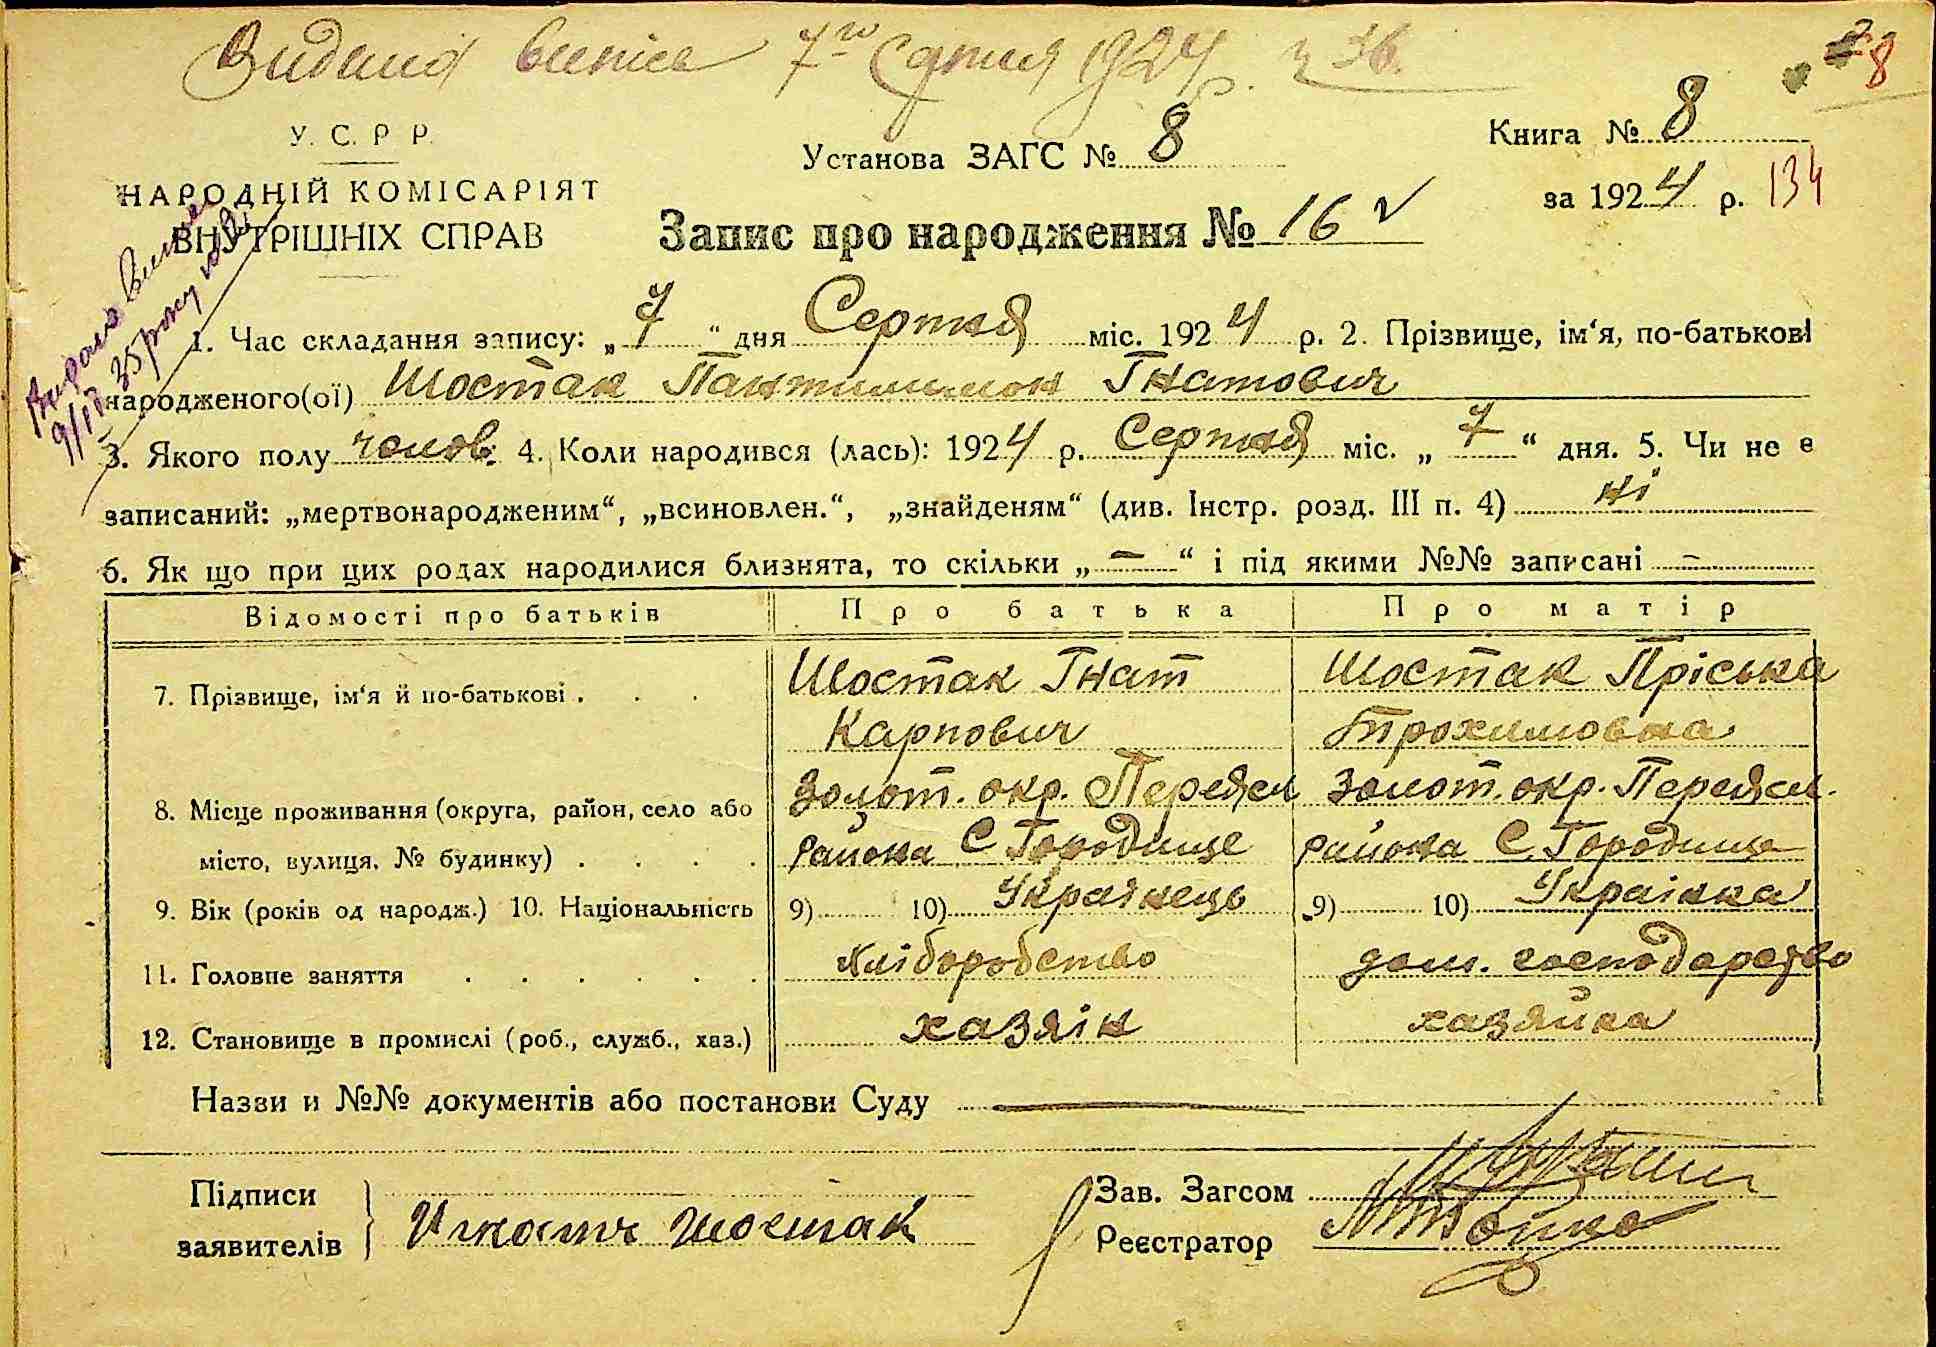 Видана випис 7го Серпня 1924 р. ч 36.
8
У. С. Р. Р.
НАРОДНІЙ КОМІСАРІЯТ
ВНУТРІШНІХ СПРАВ
Установа ЗАГС № 8
Книга № 8
за 1924 р. 134
Запис про народження № 16
1. Час складання запису: „7“ дня Серпня міс. 1924 р. 2. Прізвище, ім‘я, по-батькові
народженого(ої) Шостак Пантилимон Гнатович
3. Якого полу чолов. 4. Коли народився (лась): 1924 р. Серпня міс. „7“ дня. 5. Чи не є
записаний: „мертвонародженим“, „всиновлен.“, „знайденям“ (див. Інстр. розд. III п. 4) ні
6. Як що при цих родах народилися близнята, то скільки „—“ і під якими №№ записані —
Відомості про батьків Про батька Про матір
7. Прізвище, ім‘я й по-батькові . . . Шостак Гнат Шостак Пріська
Карпович Трохимовна
8. Місце проживання (округа, район, село або Золот. окр. Переясл Золот. окр. Переясл.
місто, вулиця, № будинку) . . . . района С Городище района С. Городище
9. Вік (років од народж.) 10. Національність 9) 10) Українець 9) 10) Українка
11. Головне заняття . . . . . . хліборобство дом. господарство
12. Становище в промислі (роб., служб., хаз.) хазяін хазяйка
Назви и №№ документів або постанови Суду —
Підписи
заявителів
Игнатъ Шостак
Зав. Загсом
Реєстратор